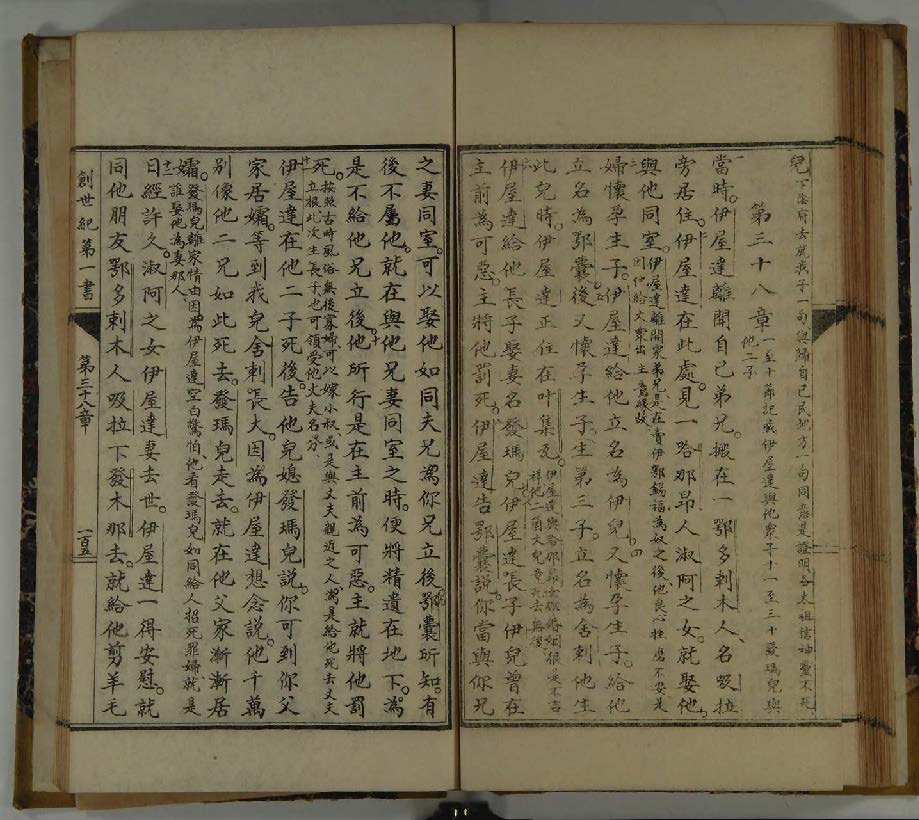 兒下陰府去就我子一句與歸自己民地方一句同意是證明各太祖信神靈不死
第三十八章一至十節記載伊屋達與他眾子十一至三十發瑪兒與
他二子
當時伊屋達離開自己弟兄搬在一鄂多剌木人名吸拉
旁居住伊屋達在此處見一哈那昂人淑阿之女就娶他
與他同室伊屋達離開眾弟兄是在賣伊鄂錫福為奴之後他良心挫磨不安是
因他給大眾出主意緣故
婦懷孕主子伊屋達給他立名為伊兒又懷孕生子給他
立名為鄂囊後又懷孕生子生第三子立名為舍剌他生
此兒時伊屋達正住在叶集瓦伊屋達與哈那昂女那婚姻根來不吉
祥他二首大兒章死去無後
伊屋達給他長子娶妻名發瑪兒伊屋達長子伊兒曾在
主前為可惡主將他罰死伊屋達告鄂囊說你當與你兄
之妻同室可以娶他如同夫兄為你兄立後鄂囊所知有
後不屬他就在與他兄妻同室之時便將精遺在地下為
是不給他兄立後他所行是在主前為可惡主就將他罰
死按照古時風俗無後寡婦可以嫁小叔或是與丈夫親近之人為是給他死去丈夫
立根此次生長子也可領受他丈夫名分
伊屋達在他二子死後告他兒媳發瑪兒說你可到你父
家居孀等到我兒舍剌長大因為伊屋達想念說他千萬
別像他二兄如此死去發瑪兒走去就在他父家漸漸居
孀發瑪兒離家情由因為伊屋達空白驚怕他看發瑪兒如同給人招死罪婦就是
誰娶他為妻那人
日經許久淑阿之女伊屋達妻去世伊屋達一得安慰就
同他朋友鄂多剌木人吸拉下發木那去就給他剪羊毛
創世紀第一書
第三十八章
一百五